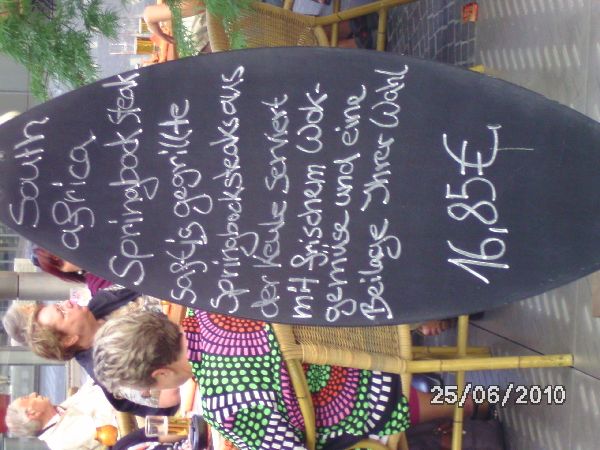 South
africa
Springbock steak
saftig gegrillte
Springbocksteaks aus
der Keule serviert
mit frischem Wok-
gemüse und eine
Beilage Ihrer Wahl
16,85€
25/06/2010